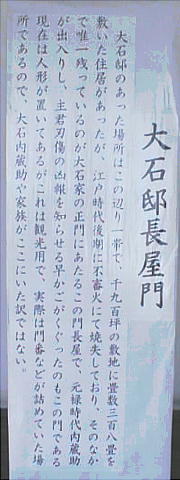 大石邸長屋門
大石邸のあった場所はこの辺り一帯で、千九百坪の敷地に畳数三百八畳を
敷いた住居があったが、江戸時代後期に不審火にて焼失しており、そのなか
で唯一残っているのが大石家の正門にあたるこの門長屋で、元禄時代内蔵助
が出入りし、主君刃傷の凶報を知らせる早かごがくぐったのもこの門である
現在は人形が置いてあるがこれは観光用で、実際は門番などが詰めていた場
所であるので、大石内蔵助や家族がここにいた訳ではない。